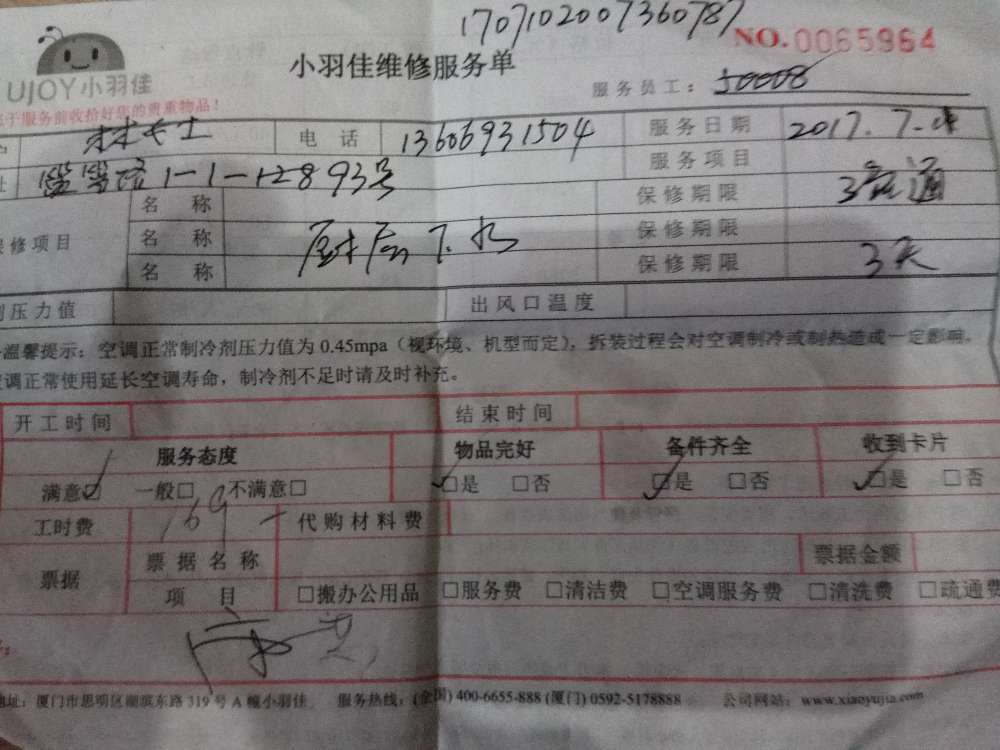 1707102007360787
NO.0065964
小羽佳维修服务单
UJOY小羽佳
服务员工： 50008
于服务前收拾好您的贵重物品！
林女士 电话 13606931504 服务日期 2017.7.
1-1-12893号 服务项目
名称 保修期限
修项目 名称 厨房下水 保修期限
名称 保修期限 3天
压力值 出风口温度
温馨提示：空调正常制冷剂压力值为 0.45mpa（视环境、机型而定），拆装过程会对空调制冷或制热造成一定影响。
调正常使用延长空调寿命，制冷剂不足时请及时补充。
开工时间 结束时间
服务态度 物品完好 备件齐全 收到卡片
满意□ 一般□ 不满意□ □是 □否 □是 □否 □是 □否
工时费 169 代购材料费
票据 票据名称 票据金额
项目 □搬办公用品 □服务费 □清洁费 □空调服务费 □清洗费 □疏通费
地址：厦门市思明区湖滨东路 319 号 A 幢小羽佳 服务热线：(全国) 400-6655-888 (厦门) 0592-5178888 公司网站：www.xiaoyujia.com